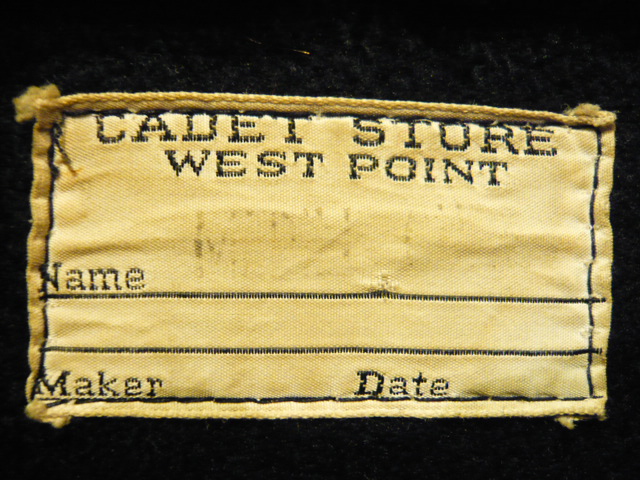 CADET STORE
WEST POINT
Name
Maker Date